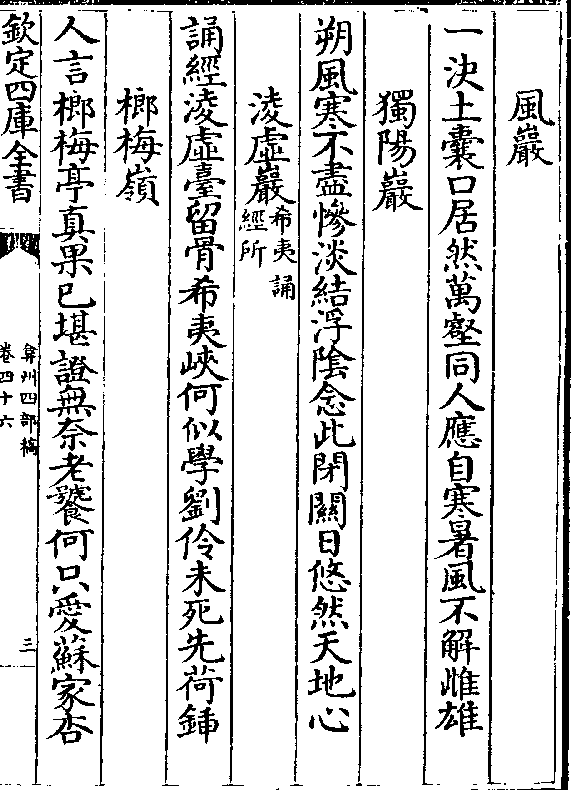 風巖
一決土囊口居然萬壑同人應自寒暑風不解雌雄
獨陽巖
朔風寒不盡慘淡結浮陰念此閉關日悠然天地心
淩虛巖希夷誦經所
誦經淩虛臺留骨希夷峽何似學劉伶未死先荷鍤
榔梅嶺
人言榔梅亭真果已堪證無奈老饕何只愛蘇家杏
欽定四庫全書
弇州四部稿
卷四十六
三